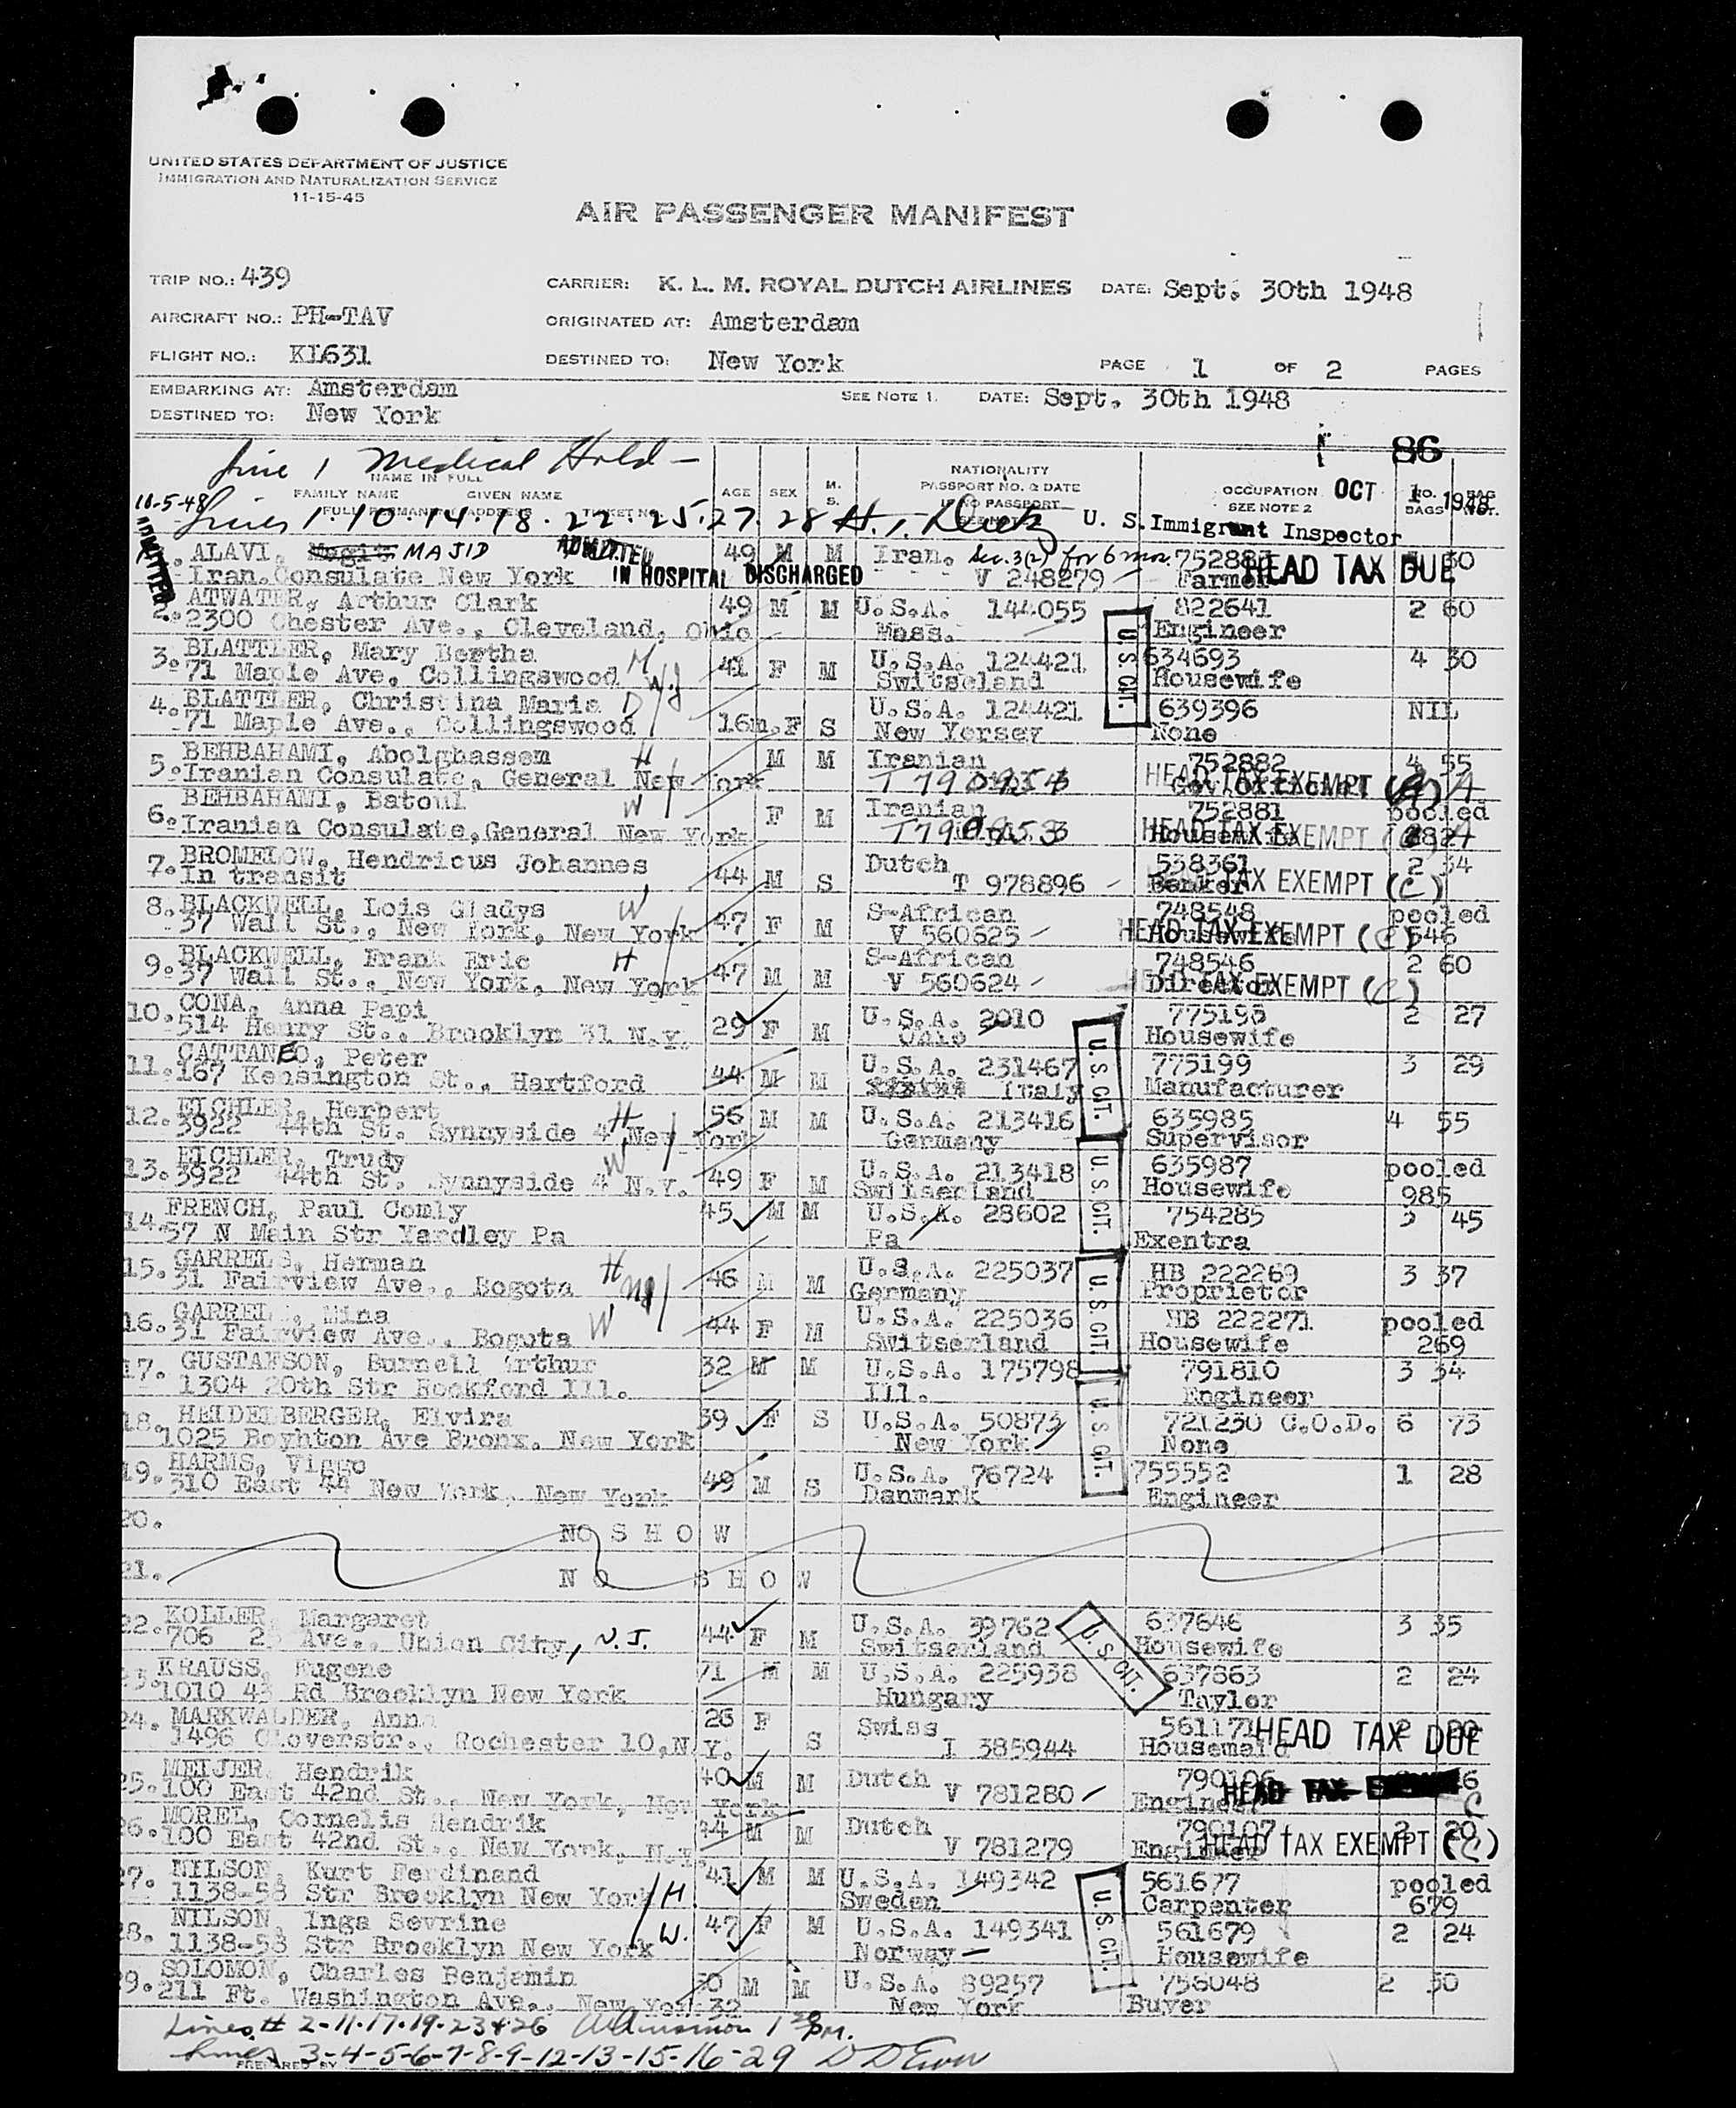 UNITED STATES DEPARTMENT OF JUSTICE
IMMIGRATION AND NATURALIZATION SERVICE
11-15-45
AIR PASSENGER MANIFEST
TRIP NO.: 439 CARRIER: K. L. M. ROYAL DUTCH AIRLINES DATE: Sept. 30th 1948
AIRCRAFT NO.: PH-TAV ORIGINATED AT: Amsterdam
FLIGHT NO.: KL631 DESTINED TO: New York PAGE 1 OF 2 PAGES
EMBARKING AT: Amsterdam SEE NOTE 1. DATE: Sept. 30th 1948
DESTINED TO: New York
86
Line 1 Medical Hold -
NAME IN FULL M. NATIONALITY
FAMILY NAME GIVEN NAME AGE SEX S. PASSPORT NO. & DATE OCCUPATION OCT 1 1948 NO.
FULL PERMANENT ADDRESS TICKET NO. IF NO PASSPORT SEE NOTE 2 BAGS
10-5-48 Lines 1.10.14.18.22.25.27.28 U. S. Immigrant Inspector
ADMITTED
1. ALAVI, MAJID ADMITTED 49 M M Iran. Sec. 3(2) for 6 mos. HEAD TAX DUE 30
Iran. Consulate New York IN HOSPITAL DISCHARGED V 248279 Farmer
2. ATWATER, Arthur Clark 49 M M U.S.A. 144055 822641 2 60
2300 Chester Ave., Cleveland, Ohio Mass. Engineer
U S CIT.
3. BLATTLER, Mary Bertha M 41 F M U.S.A. 124421 634693 4 30
71 Maple Ave. Collingswood N.J Switserland Housewife
4. BLATTLER, Christina Maria D 16m. F S U.S.A. 124421 639396 NIL
71 Maple Ave., Collingswood New Yersey None
5. BEHBAHAMI, Abolghassem H M M Iranian 752882 4 55
Iranian Consulate, General New York HEAD TAX EXEMPT
6. BEHBAHAMI, Batoul W F M Iranian 752881 pooled
Iranian Consulate, General New York HEAD TAX EXEMPT
7. BROMELOW, Hendricus Johannes 44 M S Dutch 538361 2 34
In transit T 978896 Banker TAX EXEMPT (C)
8. BLACKWELL, Lois Gladys W 47 F M S-African 748548 pooled
37 Wall St., New York, New York V 560625 HEAD TAX EXEMPT (C) 546
9. BLACKWELL, Frank Eric H 47 M M S-African 748546 2 60
37 Wall St., New York, New York V 560624 Director HEAD TAX EXEMPT (C)
10. CONA, Anna Papi 29 F M U.S.A. 2010 2 27
514 Henry St., Brooklyn 31 N.Y. Ohio Housewife
U.S. CIT.
11. CATTANEO, Peter 44 M M U.S.A. 231467 775199 3 29
167 Kensington St., Hartford Italy Manufacturer
12. EICHLER, Herbert H 56 M M U.S.A. 213416 635985 4 55
3922 44th St. Synnyside 4 New York Germany Supervisor
13. EICHLER, Trudy W 49 F M U.S.A. 213418 635987 pooled
3922 44th St. Synnyside 4 N.Y. Switserland Housewife 985
U.S. CIT.
14. FRENCH, Paul Comly 45 M M U.S.A. 28602 754285 3 45
57 N Main Str Yardley Pa Pa Exentra
15. GARRELS, Herman H 46 M M U.S.A. 225037 HB 222269 3 37
31 Fairview Ave., Bogota NJ Germany Proprietor
U.S CIT.
16. GARRELS, Mina W 44 F M U.S.A. 225036 HB 222271 pooled
31 Fairview Ave., Bogota Switserland Housewife 269
17. GUSTAFSON, Burnell Arthur 32 M M U.S.A. 175798 791810 3 34
1304 20th Str Rockford Ill. Ill. Engineer
18. HEIDELBERGER, Elvira 39 F S U.S.A. 50873 721230 C.O.D. 6 73
1025 Boynton Ave Bronx. New York New York None
U S CIT.
19. HARMS, Viggo 49 M S U.S.A. 76724 755552 1 28
310 East 44 New York, New York Danmark Engineer
20. NO S H O W
21. N O S H O W
22. KOLLER, Margaret 44 F M U.S.A. 39762 637646 3 35
706 Ave., Union City, N.J. Switserland Housewife
U. S CIT.
23. KRAUSS, Eugene 71 M M U.S.A. 225938 637863 2 24
1010 43 Rd Brooklyn New York Hungary Taylor
24. MARKWALDER, Anna F S Swiss 561171 HEAD TAX DUE
1496 Cloverstr., Rochester 10, N.Y. I 385944 Housemaid
25. MEIJER, Hendrik 40 M M Dutch 790106 HEAD TAX EXEMPT
100 East 42nd St., New York, New York V 781280 Engineer C
26. MOREL, Cornelis Hendrik 44 M M Dutch 790107 2 20
100 East 42nd St., New York, N.Y. V 781279 Engineer HEAD TAX EXEMPT (C)
27. NILSON, Kurt Ferdinand 41 M M U.S.A. 149342 561677 pooled
1138-58 Str Brooklyn New York H. Sweden Carpenter 679
U.S CIT.
28. NILSON, Inga Sevrine 47 F M U.S.A. 149341 561679 2 24
1138-58 Str Brooklyn New York W. Norway Housewife
29. SOLOMON, Charles Benjamin 50 M M U.S.A. 89257 756048 2 30
211 Ft. Washington Ave., New York 32 New York Buyer
Lines # 2-11-17-19-23+26
Lines 3-4-5-6-7-8-9-12-13-15-16-29
PREPARED BY